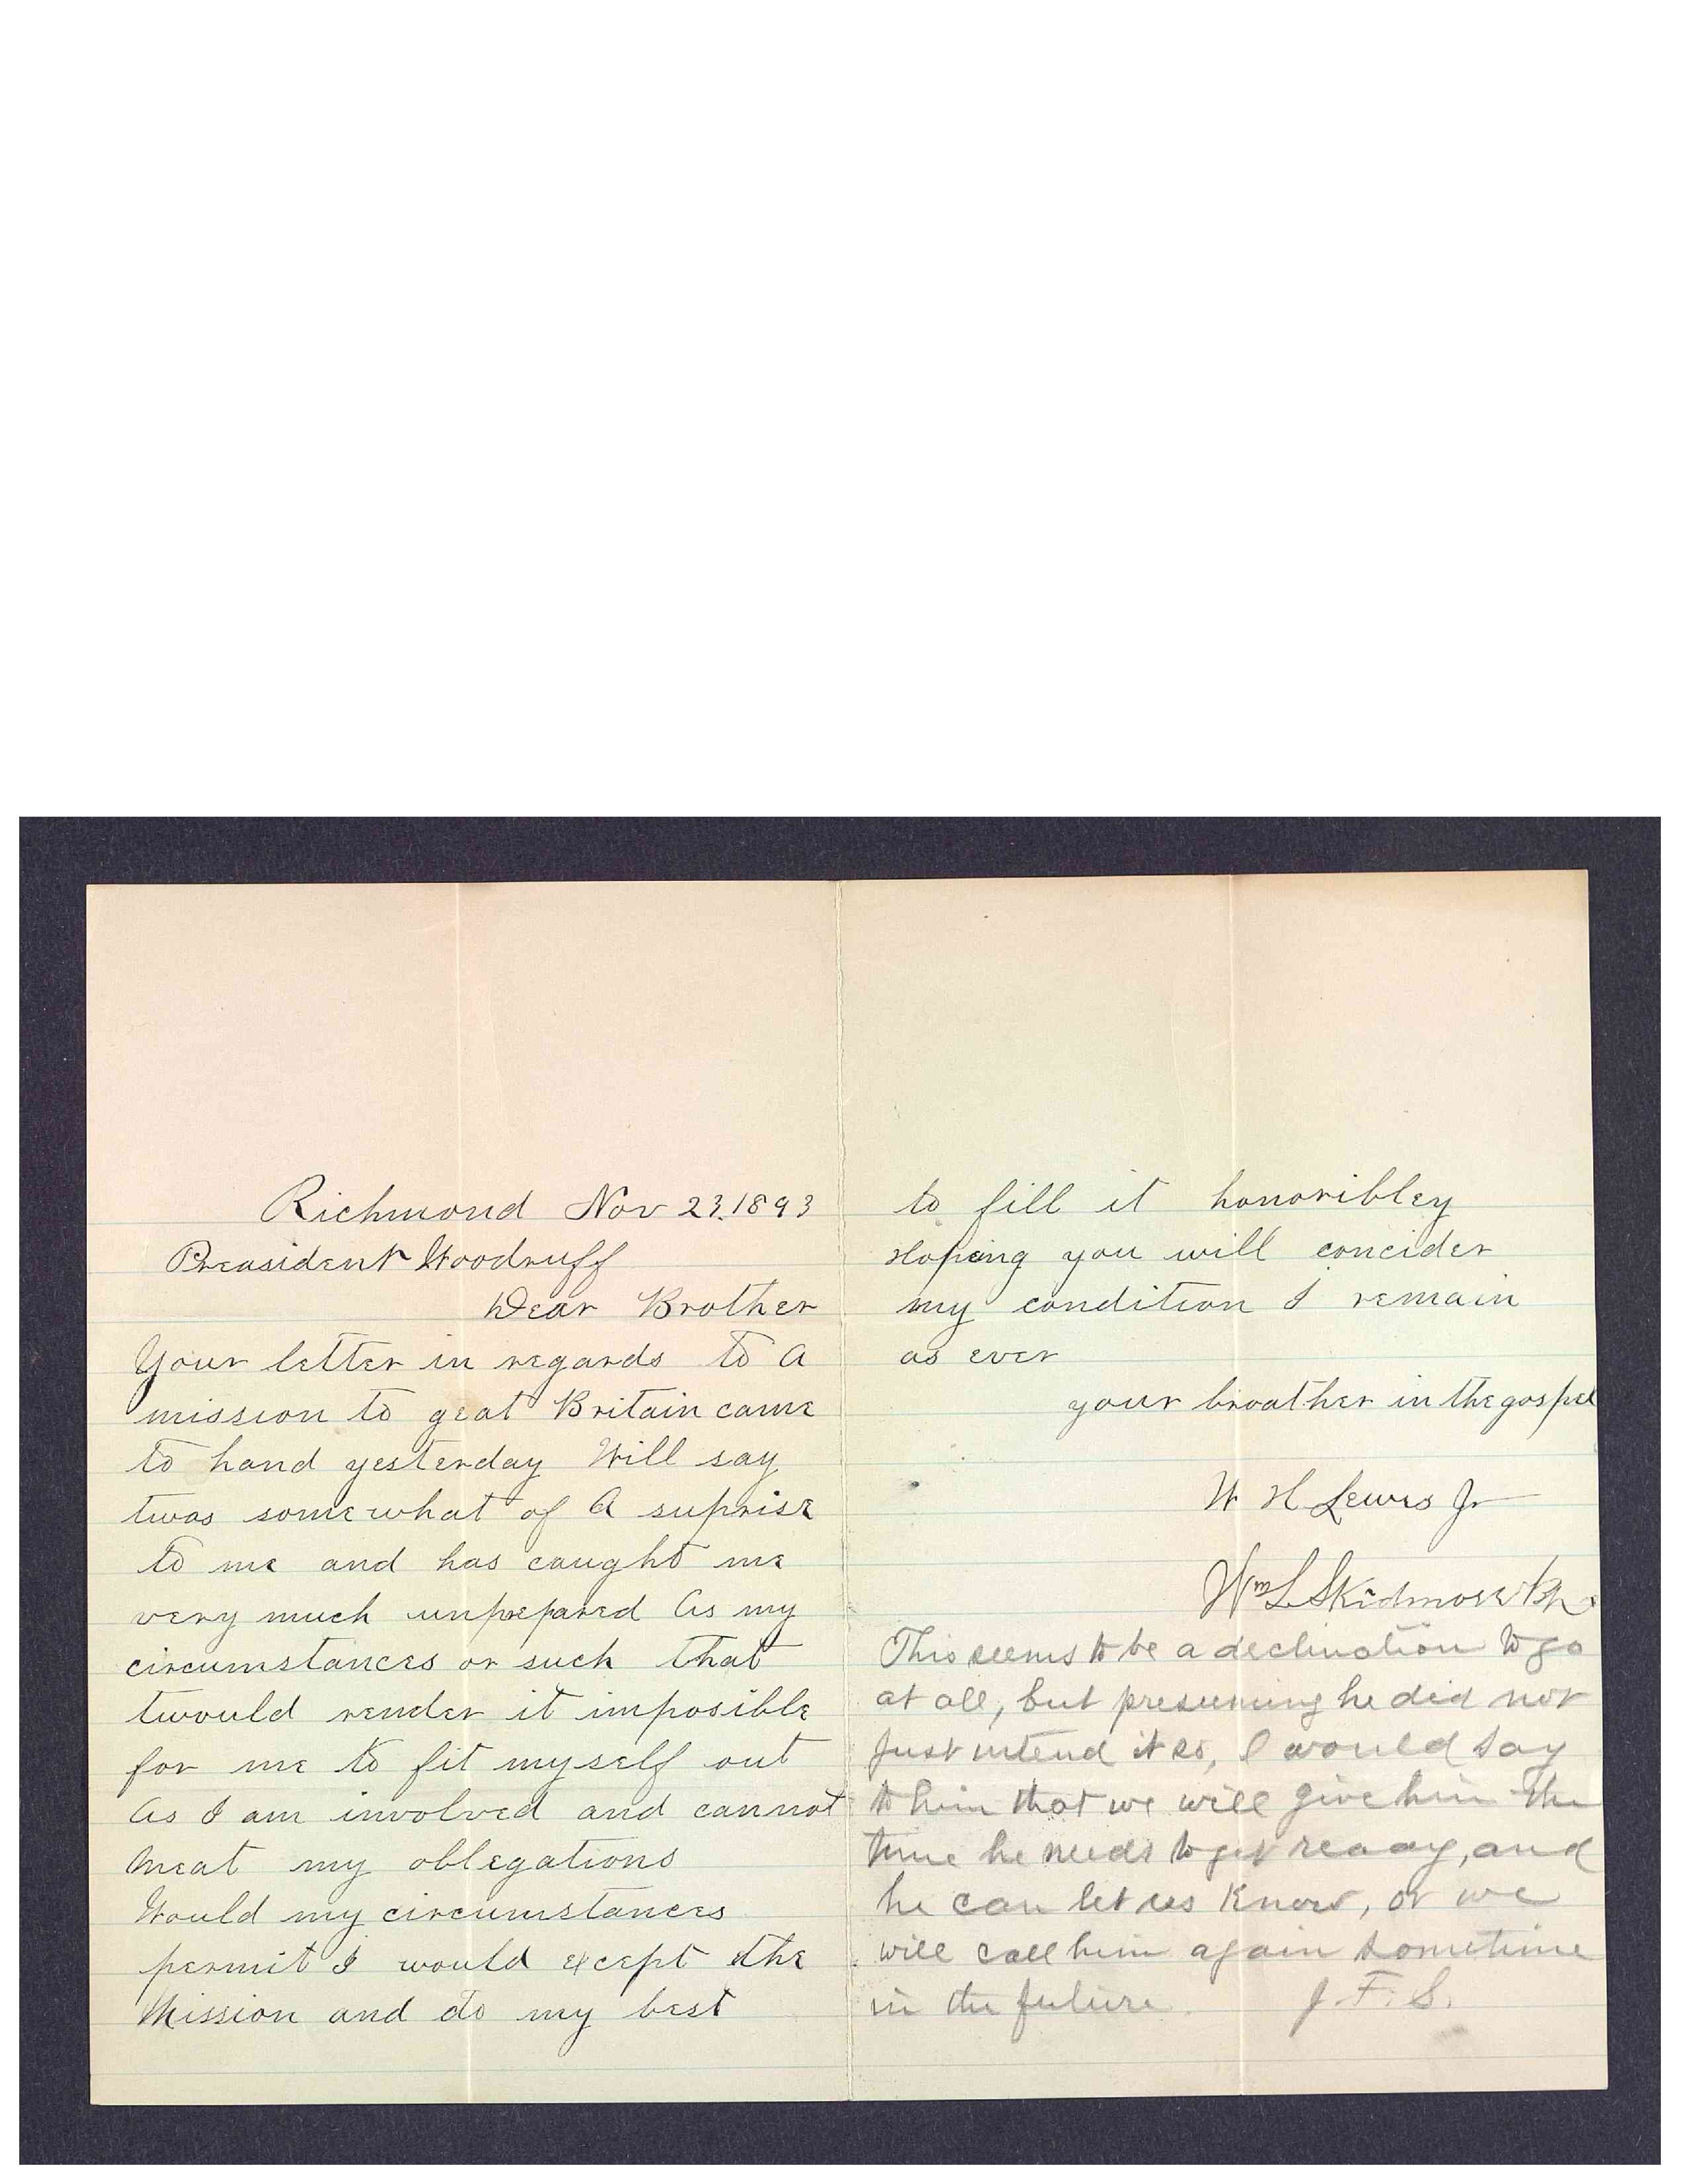 Richmond Nov 23. 1893
Preasident Woodruff
Dear Brother
Your letter in regards to a
mission to geat Britain came
to hand yesterday Will say
twas somewhat of a suprise
to me and has caught me
very much unprepared as my
circumstances or such that
twould render it imposible
for me to fit myself out
as I am involved and cannot
meat my oblegations
Would my circumstances
permit I would except the
Mission and do my best
to fill it honoribley
Hopeing you will concider
my condition I remain
as ever
your broather in the gospel
W H Lewis Jr
Wm L Skidmore Bp
This seems to be a declination to go
at all, but presuming he did not
just intend it so, I would say
to him that we will give him the
time he needs to get ready, and
he can let us know, or we
will call him again sometime
in the future. J. F. S.